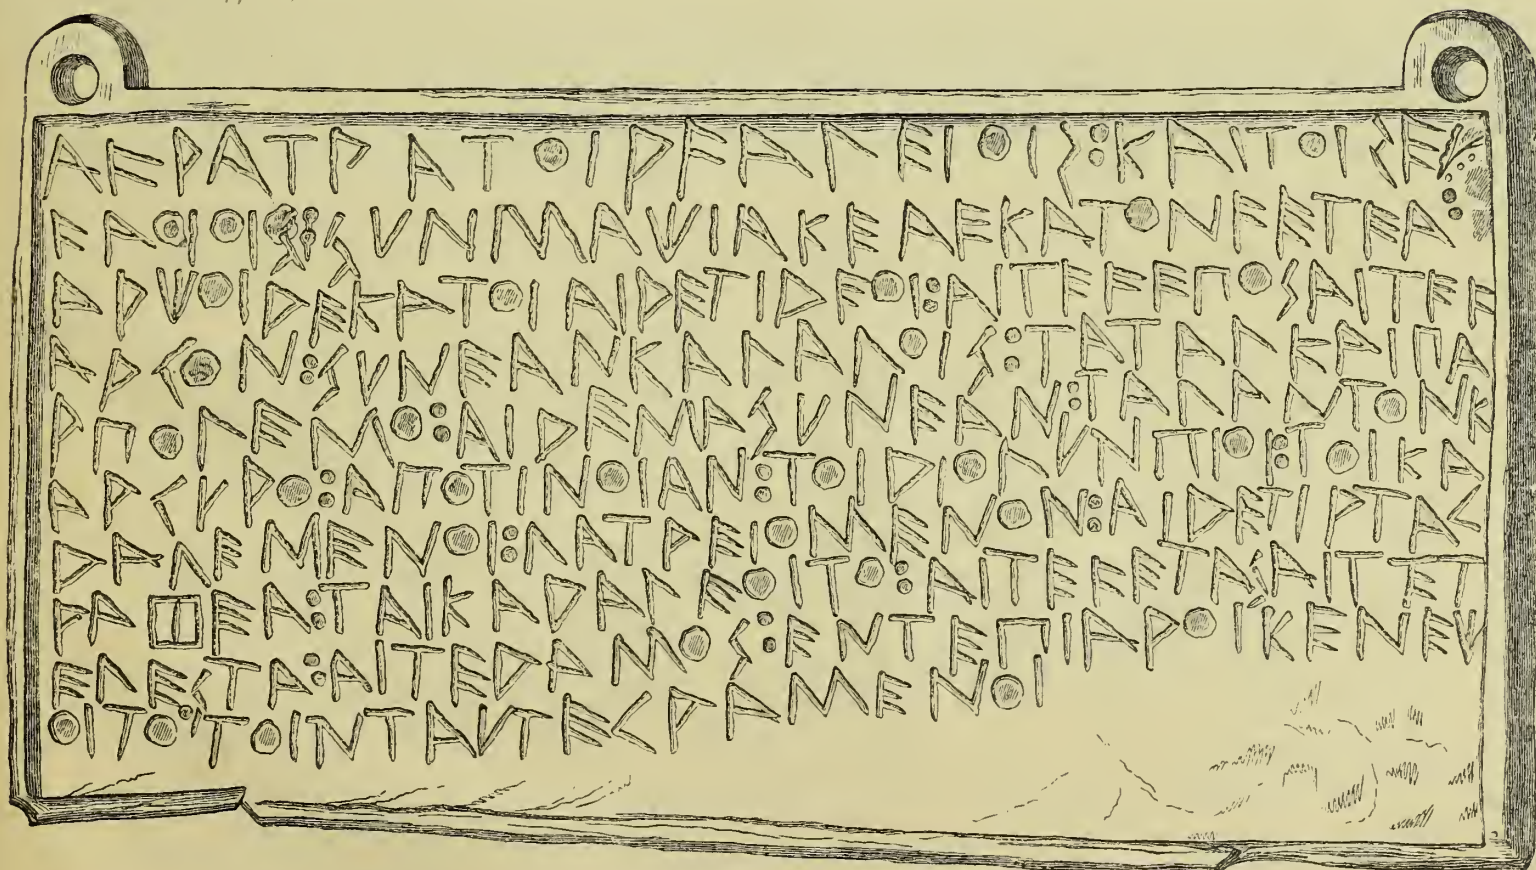 ΑϜΡΑΤΡΑΤΟΙΡϜΑΛΕΙΟΙΣ:ΚΑΙΤΟΙΣΕΡ
ϜΑΟΙΟΙΣ:ΣΥΝΜΑΨΙΑΚΕΑΕΚΑΤΟΝϜΕΤΕΑ
ΑΡΨΟΙΔΕΚΑΤΟΙΑΙΔΕΤΙΔΕΟΙ:ΑΙΤΕϜΕΠΟΣΑΙΤΕϜ
ΑΡΓΟΝ:ΣΥΝΕΑΝΚΑΛΑΛΟΙΣ:ΤΑΤΑΛΚΑΙΠΑ
ΡΠΟΛΕΜΟ:ΑΙΔΕΜΑΣΥΝΕΑΝ:ΤΑΛΑΝΤΟΝΚ
ΑΡΓΥΡΟ:ΑΠΟΤΙΝΟΙΑΝ:ΤΟΙΔΙΟΛΥΝΠΙΟΙ:ΤΟΙΚΑ
ΔΑΛΕΜΕΝΟΙ:ΛΑΤΡΕΙΟΜΕΝΟΝ:ΑΙΔΕΤΙΡΤΑΓ
ΡΑΦΕΑ:ΤΑΙΚΑΔΑΛΕΟΙΤΟ:ΑΙΤΕϜΕΤΑΣΑΙΤΕΤ
ΕΛΕΣΤΑ:ΑΙΤΕΔΑΜΟΣ:ΕΝΤΕΠΙΑΡΟΙΚΕΝΕΨ
ΟΙΤΟ:ΤΟΙΝΤΑΥΤΕΓΡΑΜΕΝΟΙ